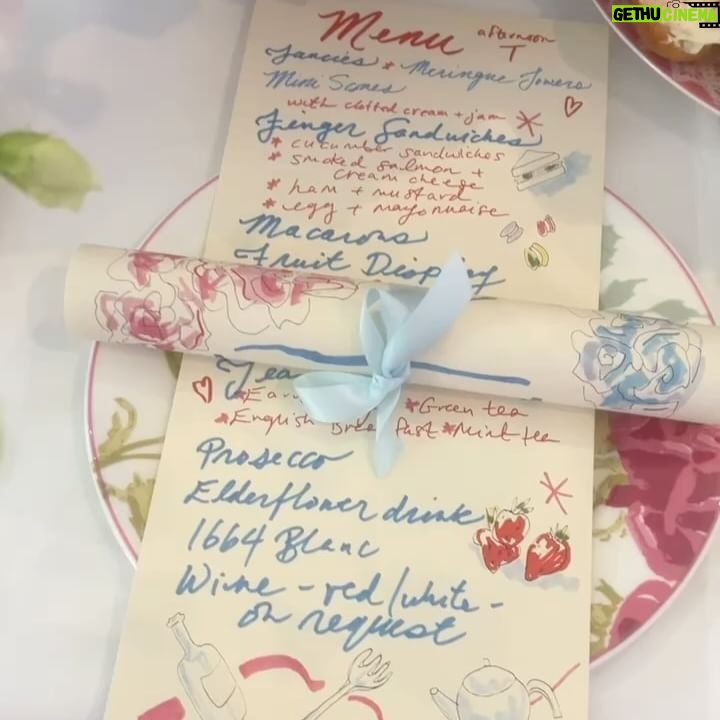 GETHUCINEMA
Menu
afternoon
T
Fancies * Meringue Towers
Mini Scones
with clotted cream + jam
Finger Sandwiches
* cucumber sandwiches
* smoked salmon +
cream cheese
* ham + mustard
* egg + mayonnaise
Macarons
Fruit Display
Tea
*Green tea
*English Breakfast *Mint tea
Prosecco
Elderflower drink
1664 Blanc
Wine - red/white -
on request